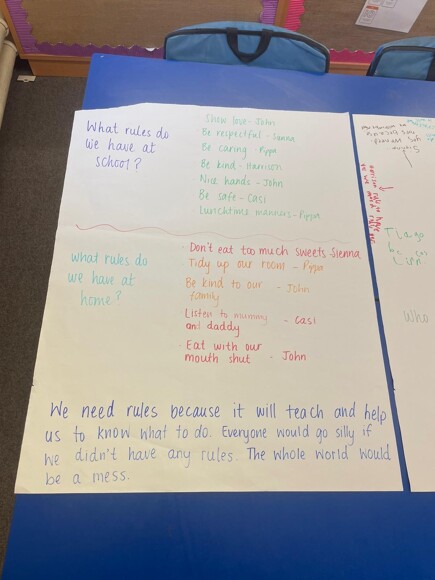 What rules do
we have at
school?
Show love - John
Be respectful - Sienna
Be caring - Pippa
Be kind - Harrison
Nice hands - John
Be safe - Casi
Lunchtime manners - Pippa
What rules do
we have at
home?
· Don't eat too much sweets - Sienna
Tidy up our room - Pippa
Be kind to our - John
family
Listen to mummy - Casi
and daddy
· Eat with our
mouth shut - John
We need rules because it will teach and help
us to know what to do. Everyone would go silly if
we didn't have any rules. The whole world would
be a mess.
Who